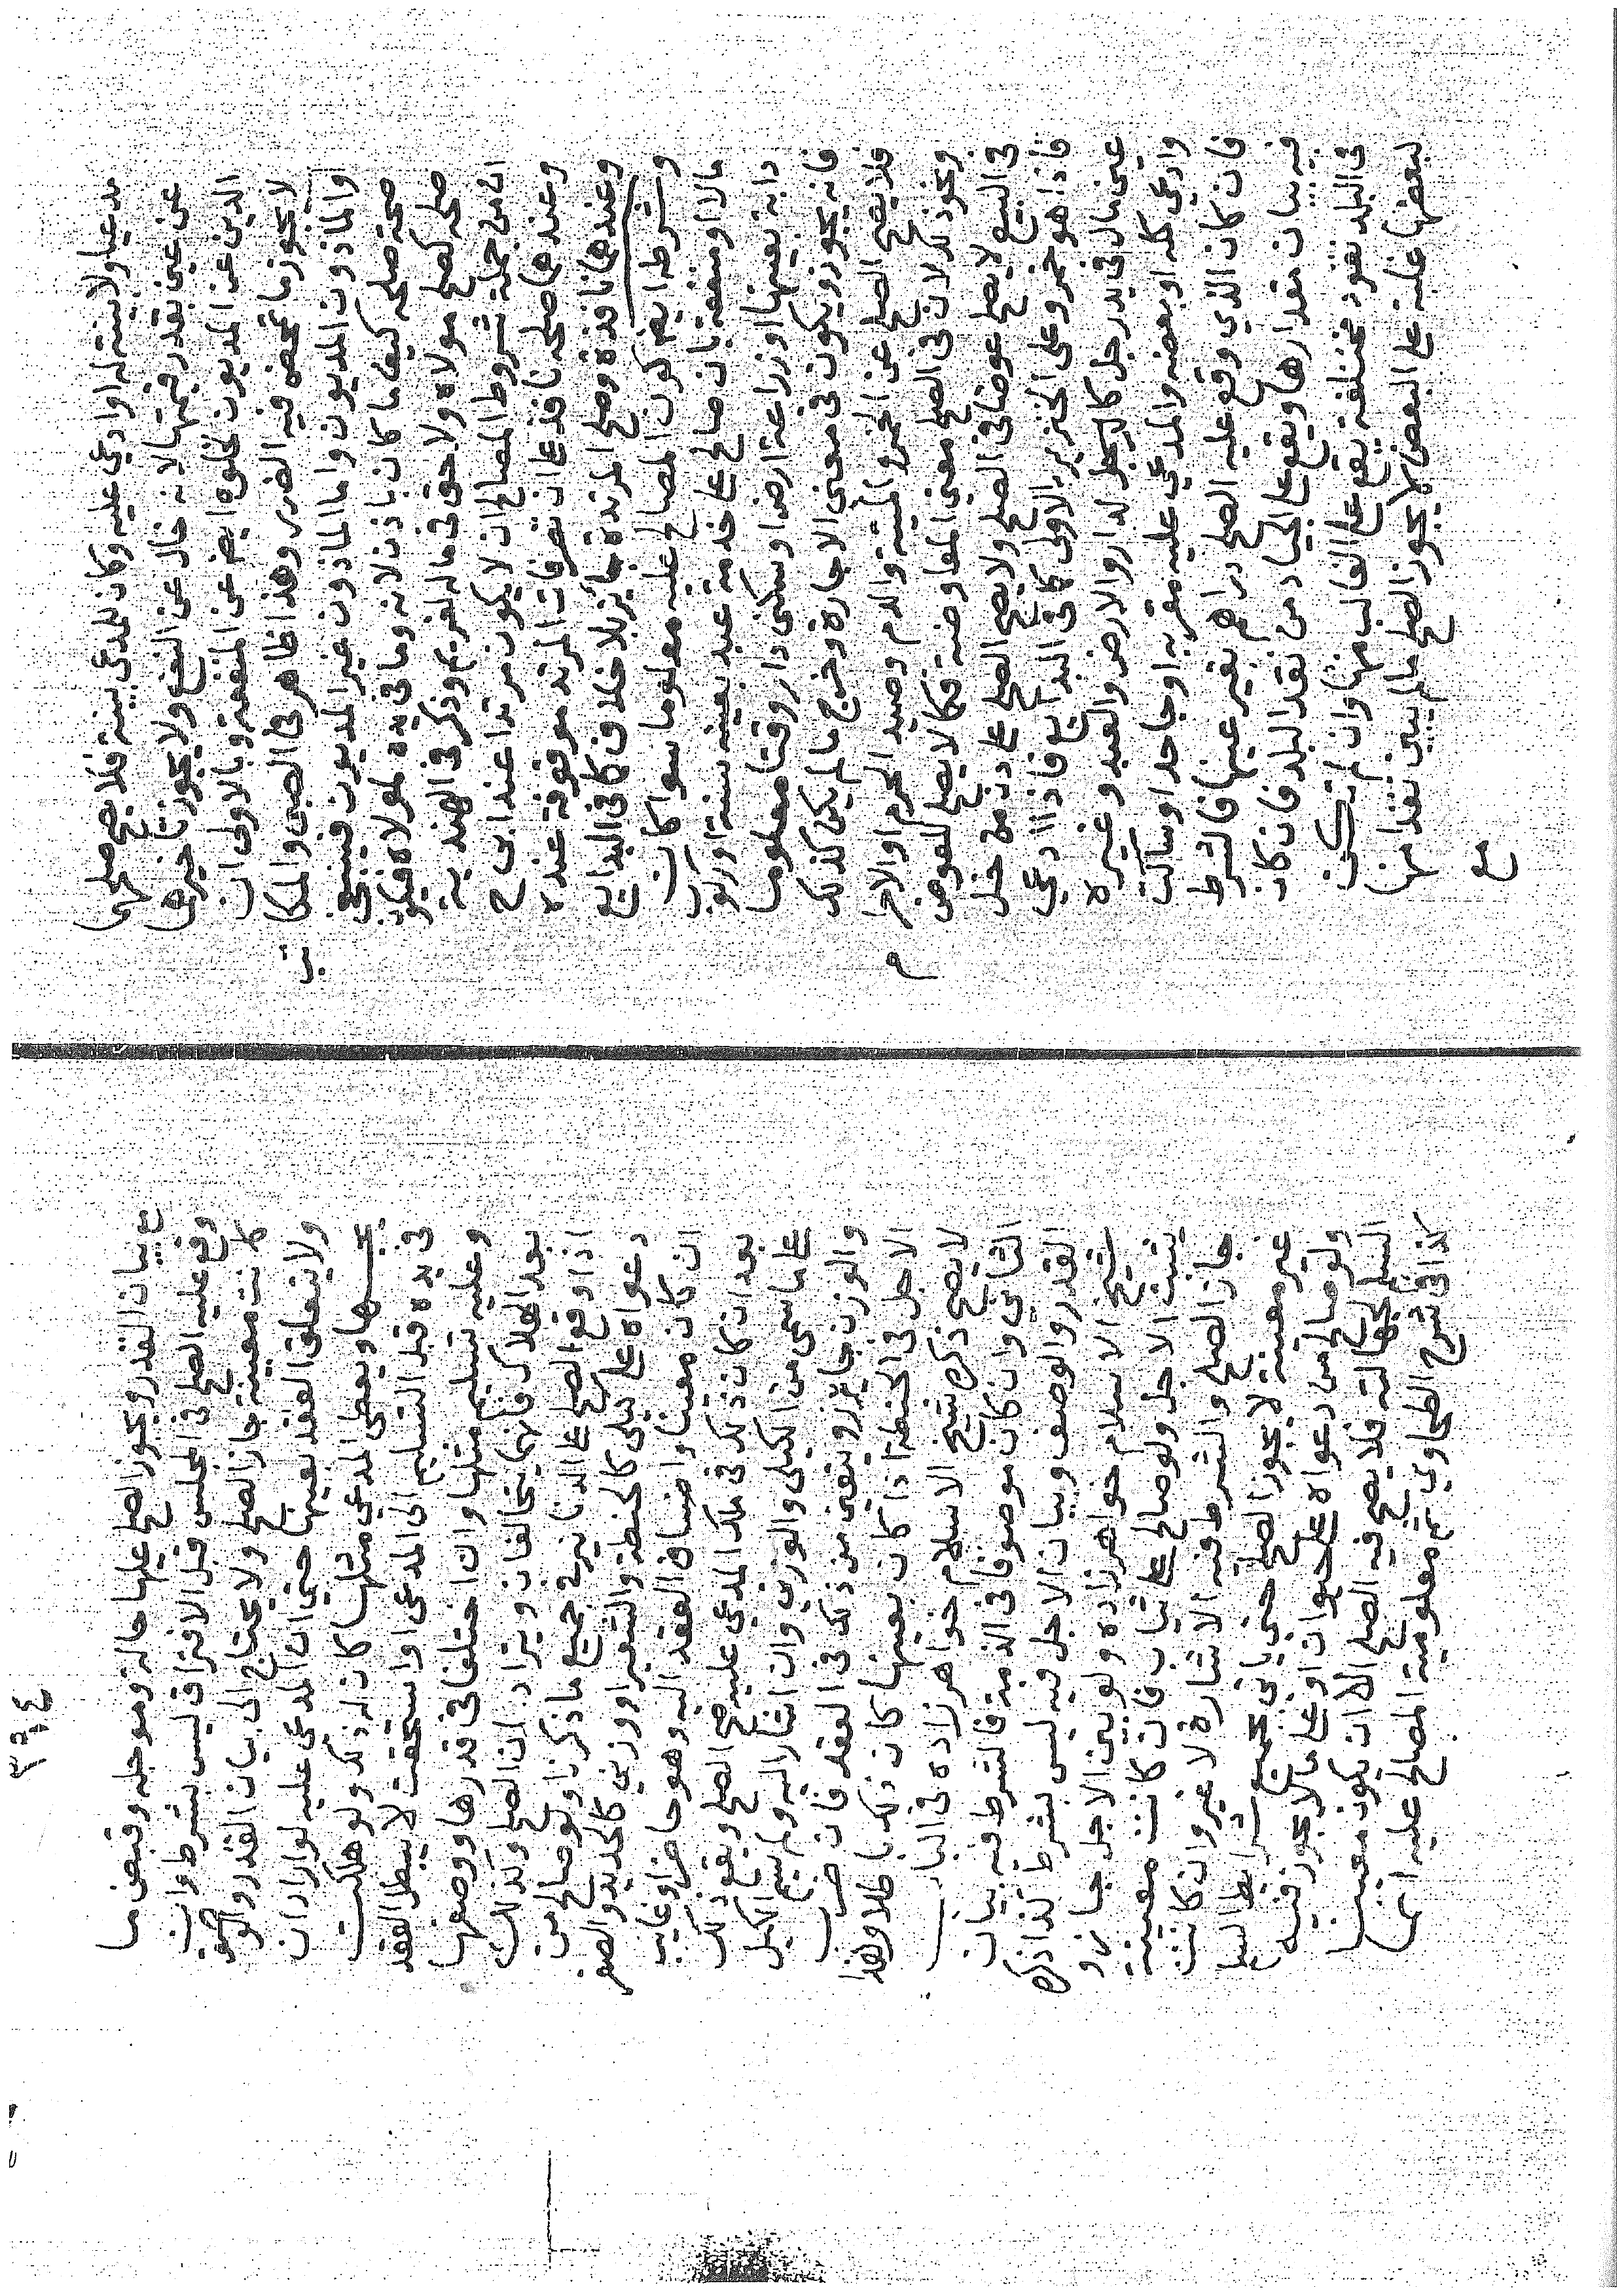 مدعيا ولا بينة له او ادعي عليه وكان للمدعي بينة فلا يصح صلحهما
عن عين بقدر قيمتها لانه خال عن النفع ولا يجوز تاخيرهما
الدين عن المديون لخلوه ايض عن المنفعة وبالاولى ان
لا يجوز ما تمحض فيه الضرر وهذا ظاهر في الصبي والمكاتب
والماذون المديون واما الماذون غير المديون فينبغي
صحة صلحه كيف ما كان باذن لانه وما في يده لمولاه فيكون
صلحه كصلح مولاه ولا حق في ماله لغريم وذكر في الهندية
ان من جملة شروط المصالح ان لا يكون مرتدا عند ابي ح
وعندهما صلحه نافذ على ان تصرفات المرتد موقوفة عنده
وعندهما نافذة وصلح المرتدة جائز بلا خلاف كما في البدايع
وشرطه ايض كون المصالح عليه معلوما سوا كان
مالا او منفعة بان صالح على خدمة عبد بعينه سنة او ركوب
دابة بعينها او زراعة ارض او سكنى دار وقتا معلوما
فانه يجوز ويكون في معنى الاجارة وخرج ما لم يكن كذلك
فلا يصح الصلح عن الخمر والميتة والدم وصيد الحرم او الاحرام
ونحو ذلك لان في الصلح معنى المعاوضة فكما لا يصلح للعوض
في البيع لا يصلح عوضا في الصلح ولا يصح الصلح على دن من خل
فاذا هو خمر وعلى الخنزير بالاولى كما في البدايع فاذا ادعى
عين مال في يد رجل كالرجل لدار والارض والعبد وغيره
وادعى كله او بعضه والمدعي عليه مقر به او جاحد او ساكت
فان كان الذي وقع عليه الصلح دراهم بغير عينها فالشرط
فيه بيان مقدارها ويقع على الجياد من نقد البلد فان كان
في البلد نقود مختلفة يقع على الغالب منها وان لم تكن
لبعضها غلبة على البعض لا يجوز الصلح مالم يبين نقدا منها
مع
٣٦٤
مع بيان القدر ويجوز الصلح عليها حالة وموجله وقبض ما
وقع عليه الصلح في المجلس قبل الافتراق ليس بشرط وان
كانت معينة جاز الصلح ولا يحتاج الى بيان القدر والوصف
ولا يتعلق العقد بعينها حتى ان المدعى عليه لو اراد ان
يحبسها ويعطي المدعي مثلها كان له ذلك ولو هلكت
في يده قبل التسليم الى المدعي او استحقت لا يبطل العقد
وعليه تسليم مثلها وان اختلفا في قدرها ووصفها
بعد الهلاك فانهما يتحالفان ويترادان الصلح وكذلك
اذا وقع الصلح على الدنانير في جميع ما ذكرنا ولو صالح من
دعواه على كيلي كالحنطة والشعير او وزني كالحديد والصفر
ان كان معينا واضاف العقد اليه وهو حاضر او غايب
بعد ان كان ذلك في ملك المدعي عليه صح الصلح ويقع ذلك
على ما سمى من الكيلي والوزني وان اشار اليه ولم يسم الكيل
والوزن جايز ويتعين من ذلك في العقد فان ضرب
الاجل في الحنطة اذا كان بعينها كان ذلك باطلا وهذا
لا يصح ذكره شيخ الاسلام خواهر زاده في الباب
الثاني وان كان موصوفا في الذمة فالشرط فيه بيان
القدر والوصف وبيان الاجل فيه ليس بشرط كذا ذكره
شيخ الاسلام خواهر زاده ولو بين الاجل جاز و
يثبت الاجل ولو صالح على ثياب فان كانت معينة
جاز الصلح والشرط فيه الاشارة لا غير وان كانت
غير معينة لا يجوز الصلح حتى ياتي بجميع شرايط السلم
ولو صالح من دعواه على حيوان او على ما لا يجوز فيه
السلم لجهالته فلا يصح فيه الصلح الا ان يكون معينا
كذا في شرح الطحاوي ثم معلومية المصالح عليه انما